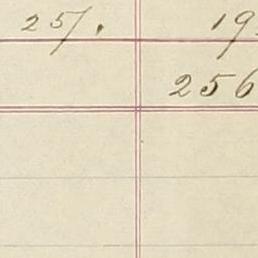 257. 19
256